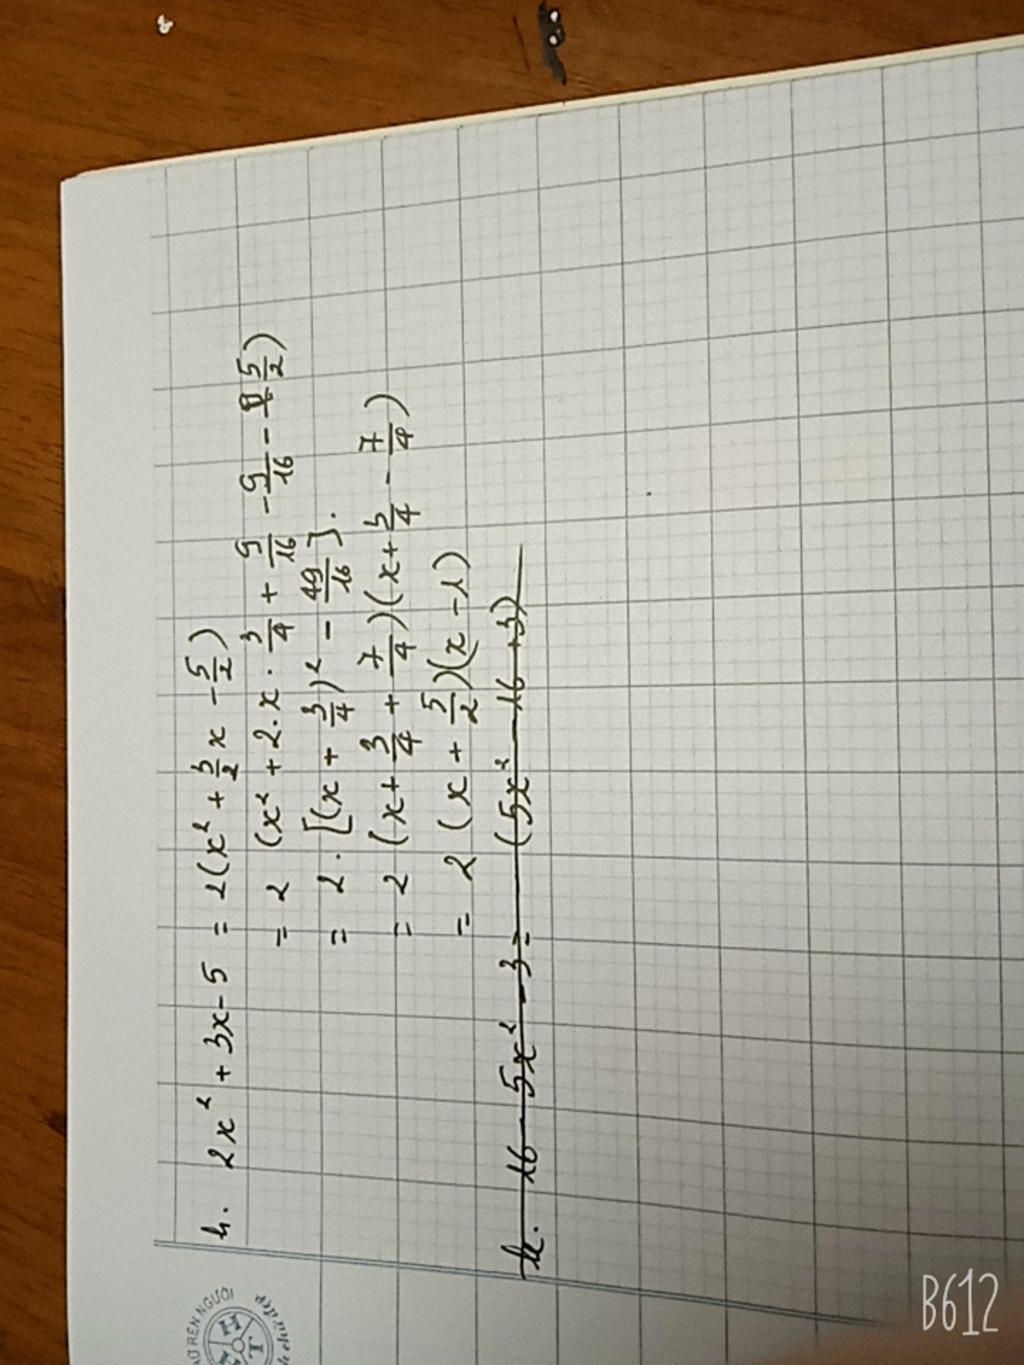 h. 2x² + 3x - 5 = 2(x² + 3/2 x - 5/2)
= 2 (x² + 2.x. 3/4 + 9/16 - 9/16 - 5/2)
= 2. [(x + 3/4)² - 49/16].
= 2 (x + 3/4 + 7/4)(x + 3/4 - 7/4)
= 2 (x + 5/2)(x - 1)
k. 16 - 5x² - 3 = (5x² - 16 + 3)
RÈN NGƯỜI
chữ đẹp
B612